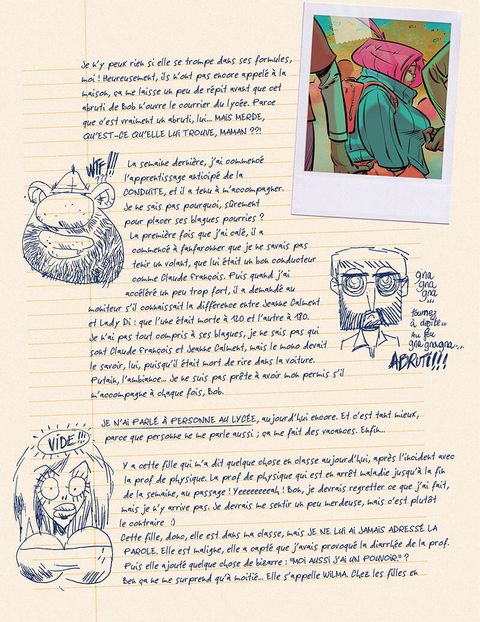 Je n'y peux rien si elle se trompe dans ses formules,
moi ! Heureusement, ils n'ont pas encore appelé à la
maison, ça me laisse un peu de répit avant que cet
abruti de Bob n'ouvre le courrier du lycée. Parce
que c'est vraiment un abruti, lui... MAIS MERDE,
QU'EST-CE QU'ELLE LUI TROUVE, MAMAN ??!
WTF!!!
La semaine dernière, j'ai commencé
l'apprentissage anticipé de la
CONDUITE, et il a tenu à m'accompagner.
Je ne sais pas pourquoi, sûrement
pour placer ses blagues pourries ?
La première fois que j'ai calé, il a
commencé à fanfaronner que je ne savais pas
tenir un volant, que lui était un bon conducteur
comme Claude François. Puis quand j'ai
accéléré un peu trop fort, il a demandé au
moniteur s'il connaissait la différence entre Jeanne Calment
et Lady Di : que l'une était morte à 120 et l'autre à 180.
Je n'ai pas tout compris à ses blagues, je ne sais pas qui
sont Claude François et Jeanne Calment, mais le mono devait
le savoir, lui, puisqu'il était mort de rire dans la voiture.
Putain, l'ambiance... Je ne suis pas prête à avoir mon permis s'il
m'accompagne à chaque fois, Bob.
gna
gna
gna
...
tournez
à droite...
au feu
gnagnagna...
ABRUTI!!!
JE N'AI PARLÉ À PERSONNE AU LYCÉE, aujourd'hui encore. Et c'est tant mieux,
parce que personne ne me parle aussi ; ça me fait des vacances. Enfin...
VIDE!!!
Y a cette fille qui m'a dit quelque chose en classe aujourd'hui, après l'incident avec
la prof de physique. La prof de physique qui est en arrêt maladie jusqu'à la fin
de la semaine, au passage ! Yeeeeeeeah ! Bon, je devrais regretter ce que j'ai fait,
mais je n'y arrive pas. Je devrais me sentir un peu merdeuse, mais c'est plutôt
le contraire :)
Cette fille, donc, elle est dans ma classe, mais JE NE LUI AI JAMAIS ADRESSÉ LA
PAROLE. Elle est maligne, elle a capté que j'avais provoqué la diarrhée de la prof.
Puis elle ajouté quelque chose de bizarre : "MOI AUSSI J'AI UN POUVOIR." ?
Ben ça ne me surprend qu'à moitié... Elle s'appelle WILMA. Chez les filles en